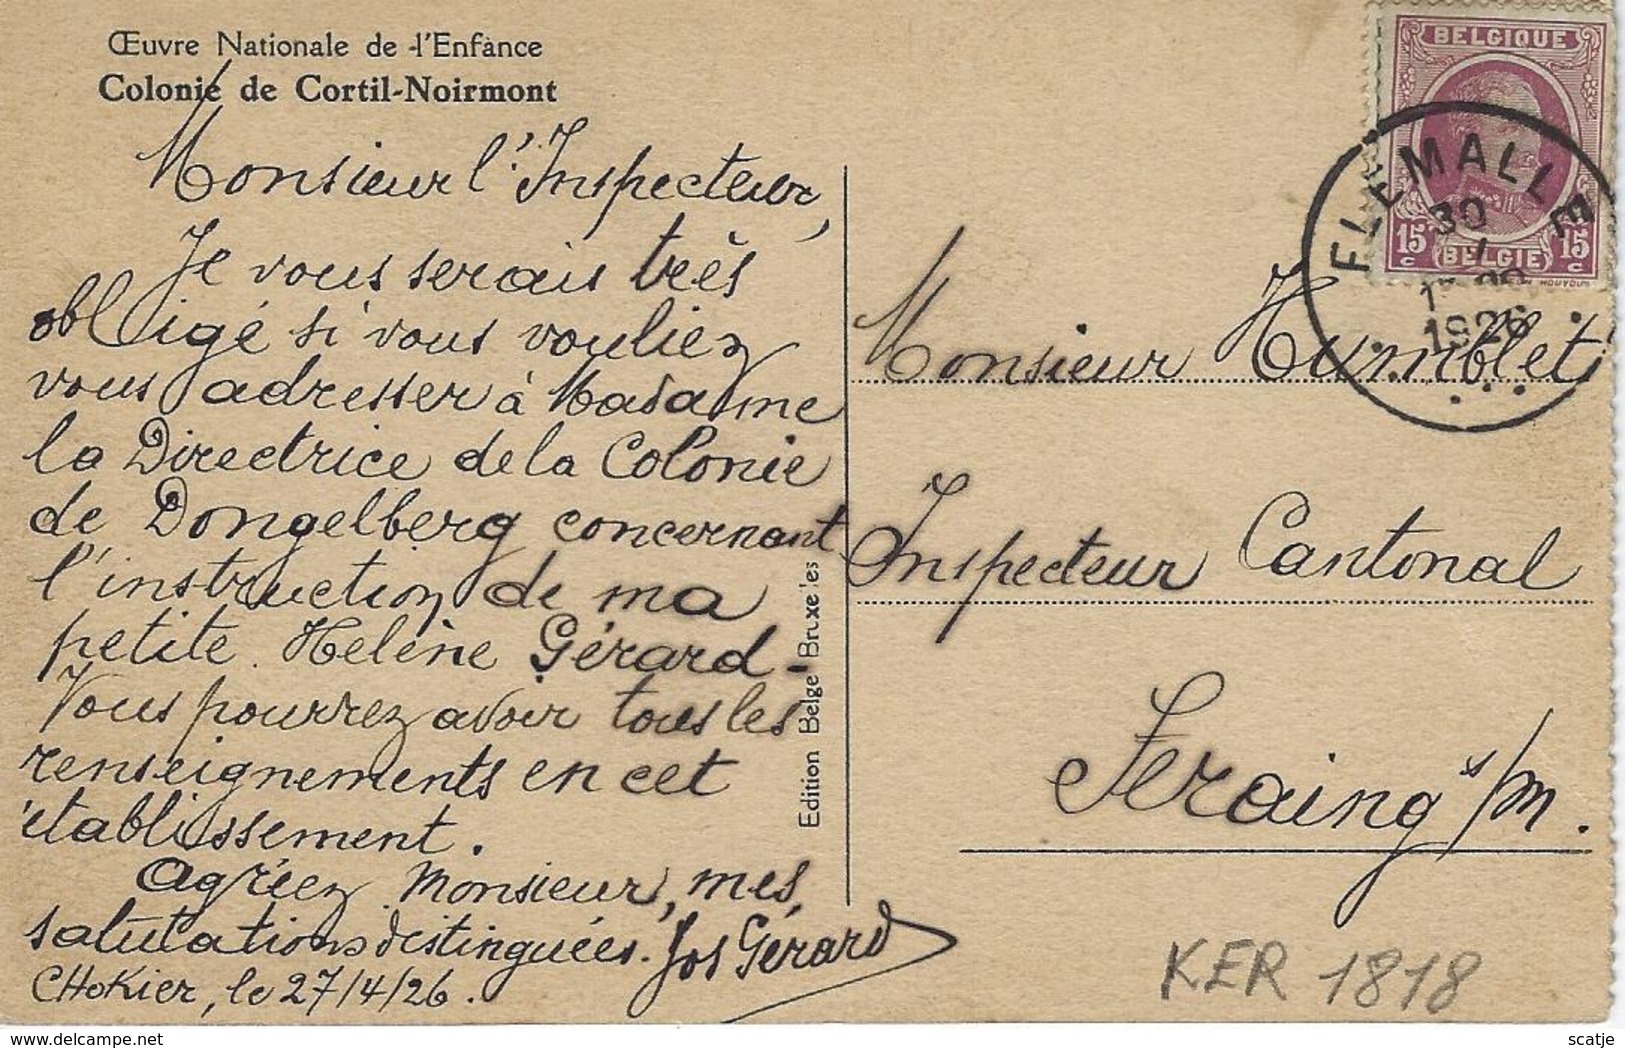 Œuvre Nationale de l'Enfance
Colonie de Cortil-Noirmont
Monsieur l'Inspecteur,
Je vous serais très
obligé si vous vouliez
vous adresser à Madame
la Directrice de la Colonie
de Dongelberg concernant
l'instruction de ma
petite Helène Gérard-
Vous pourrez avoir tous les
renseignements en cet
établissement.
Agréez Monsieur, mes
salutations distinguées. Jos Gérard
CHoKier, le 27/4/26.
Edition Belge Bruxelles
BELGIQUE
15c BELGIE 15c
FLEMALLE
30
1926
Monsieur Humblet
Inspecteur Cantonal
Seraing s/m.
KER 1818
delcampe.net
scatje